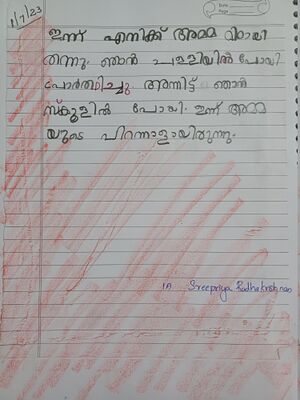 1/7/23
ഇന്ന് എനിക്ക് അമ്മ മിഠായി
തിന്നു. ഞാൻ പള്ളിയിൽ പോയി
പ്രാർത്ഥിച്ചു അന്നിട്ട് ഞാൻ
സ്കൂളിൽ പോയി. ഇന്ന് അമ്മ
യുടെ പിറന്നാളായിരുന്നു.
1A Sreepriya Radhakrishnan